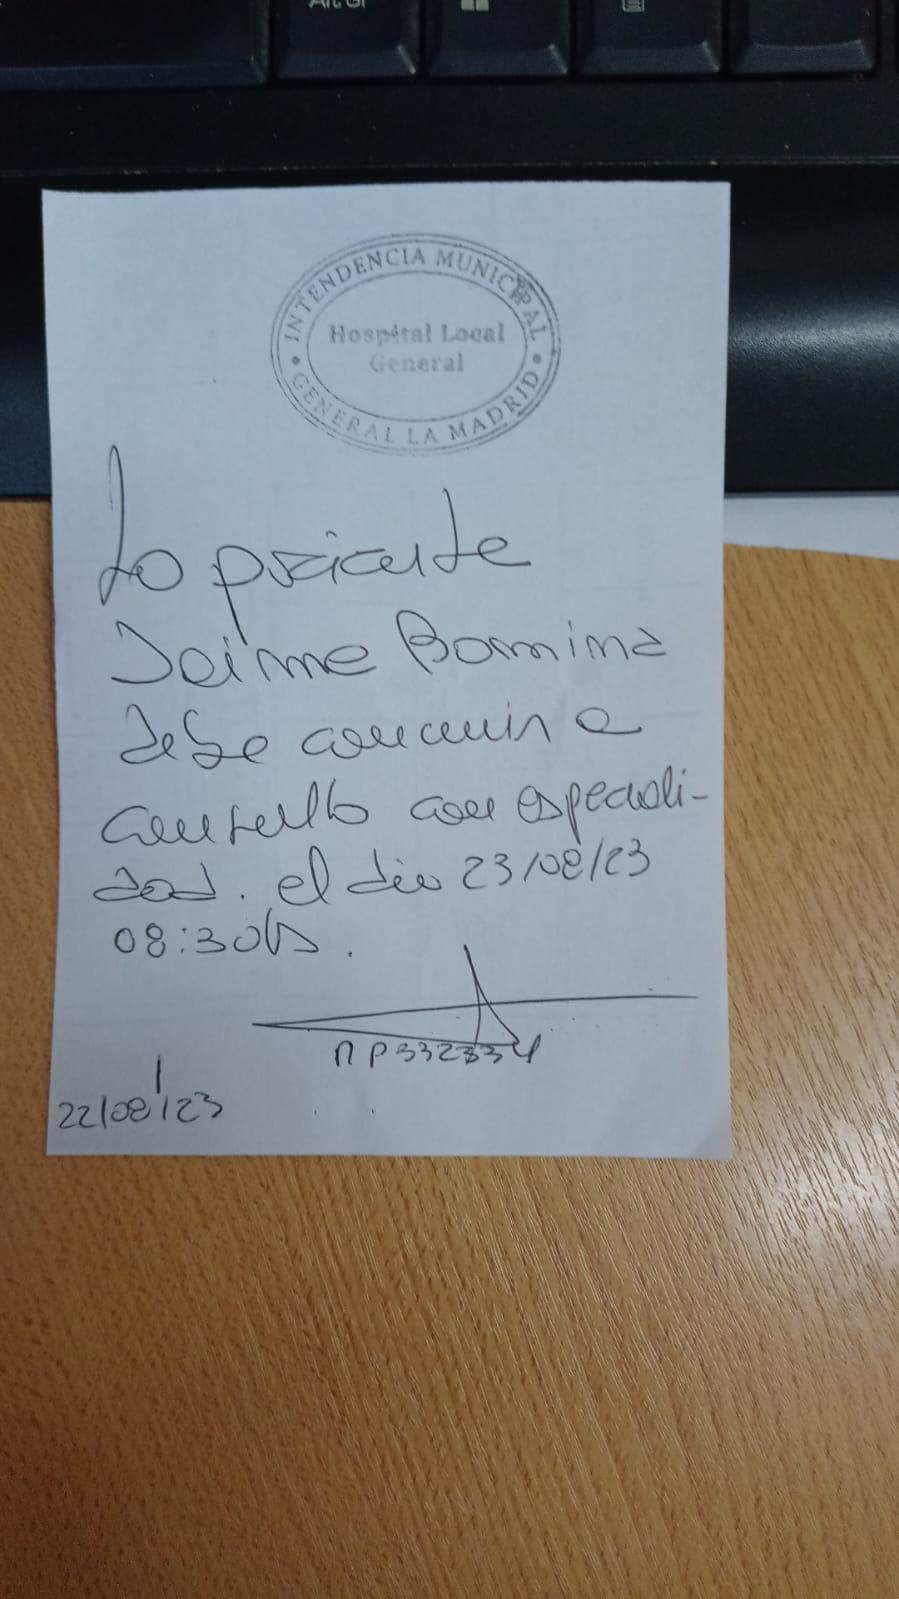 Alt Gr
INTENDENCIA MUNICIPAL
Hospital Local
General
GENERAL LA MADRID
La paciente
Jaime Romina
debe concurrir a
consulta con especiali-
dad. el día 23/08/23
08:30hs.
MP332334
22/08/23